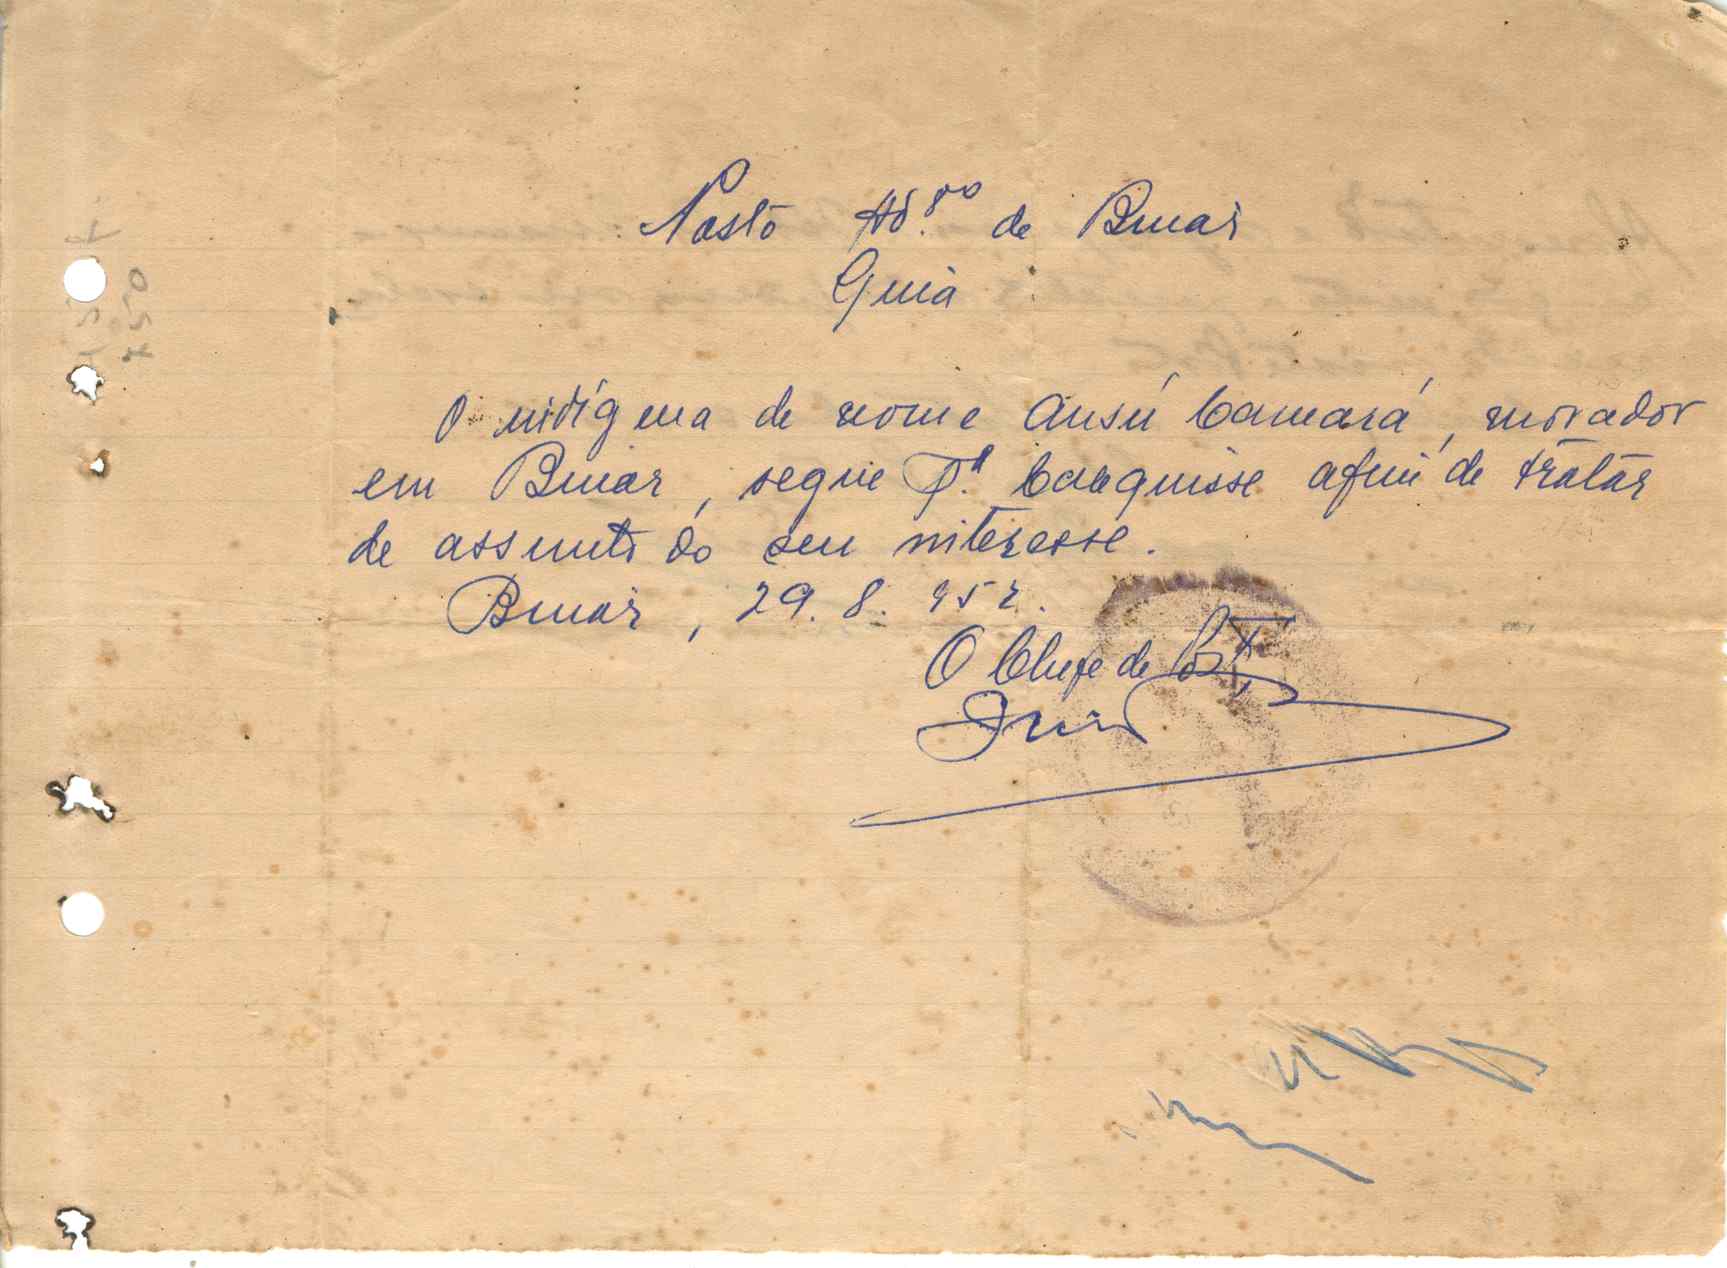 Posto Ad.vo de Binar
Guia
O indígena de nome Ansú Camará, morador
em Binar, segue P.ª Canquisse afim de tratar
de assunto do seu interesse.
Binar, 29.8.952.
O Chefe de Posto,